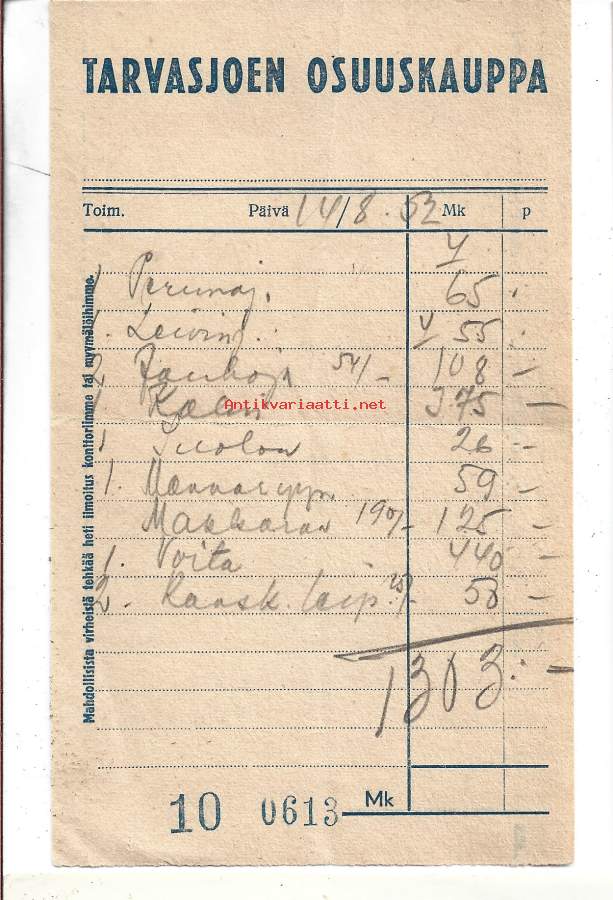 TARVASJOEN OSUUSKAUPPA
Toim. Päivä 14/8. 52 Mk p
y
1 Perunoj. 65 :
1. Leivinj. y 55 :
2 Jauhoja 54/- 108 -
1 375 -
1 Suolaa 26 :-
1. Mannaryyn. 59 -
Makkaraa 190/- 125 -
1. Voita 440 -
2. Ransk. leip. 25/- 50 -
1303:-
10 0613 Mk
Mahdollisista virheistä tehkää heti ilmoitus konttoriimme tai myymälöihimme.
Antikvariaatti.net